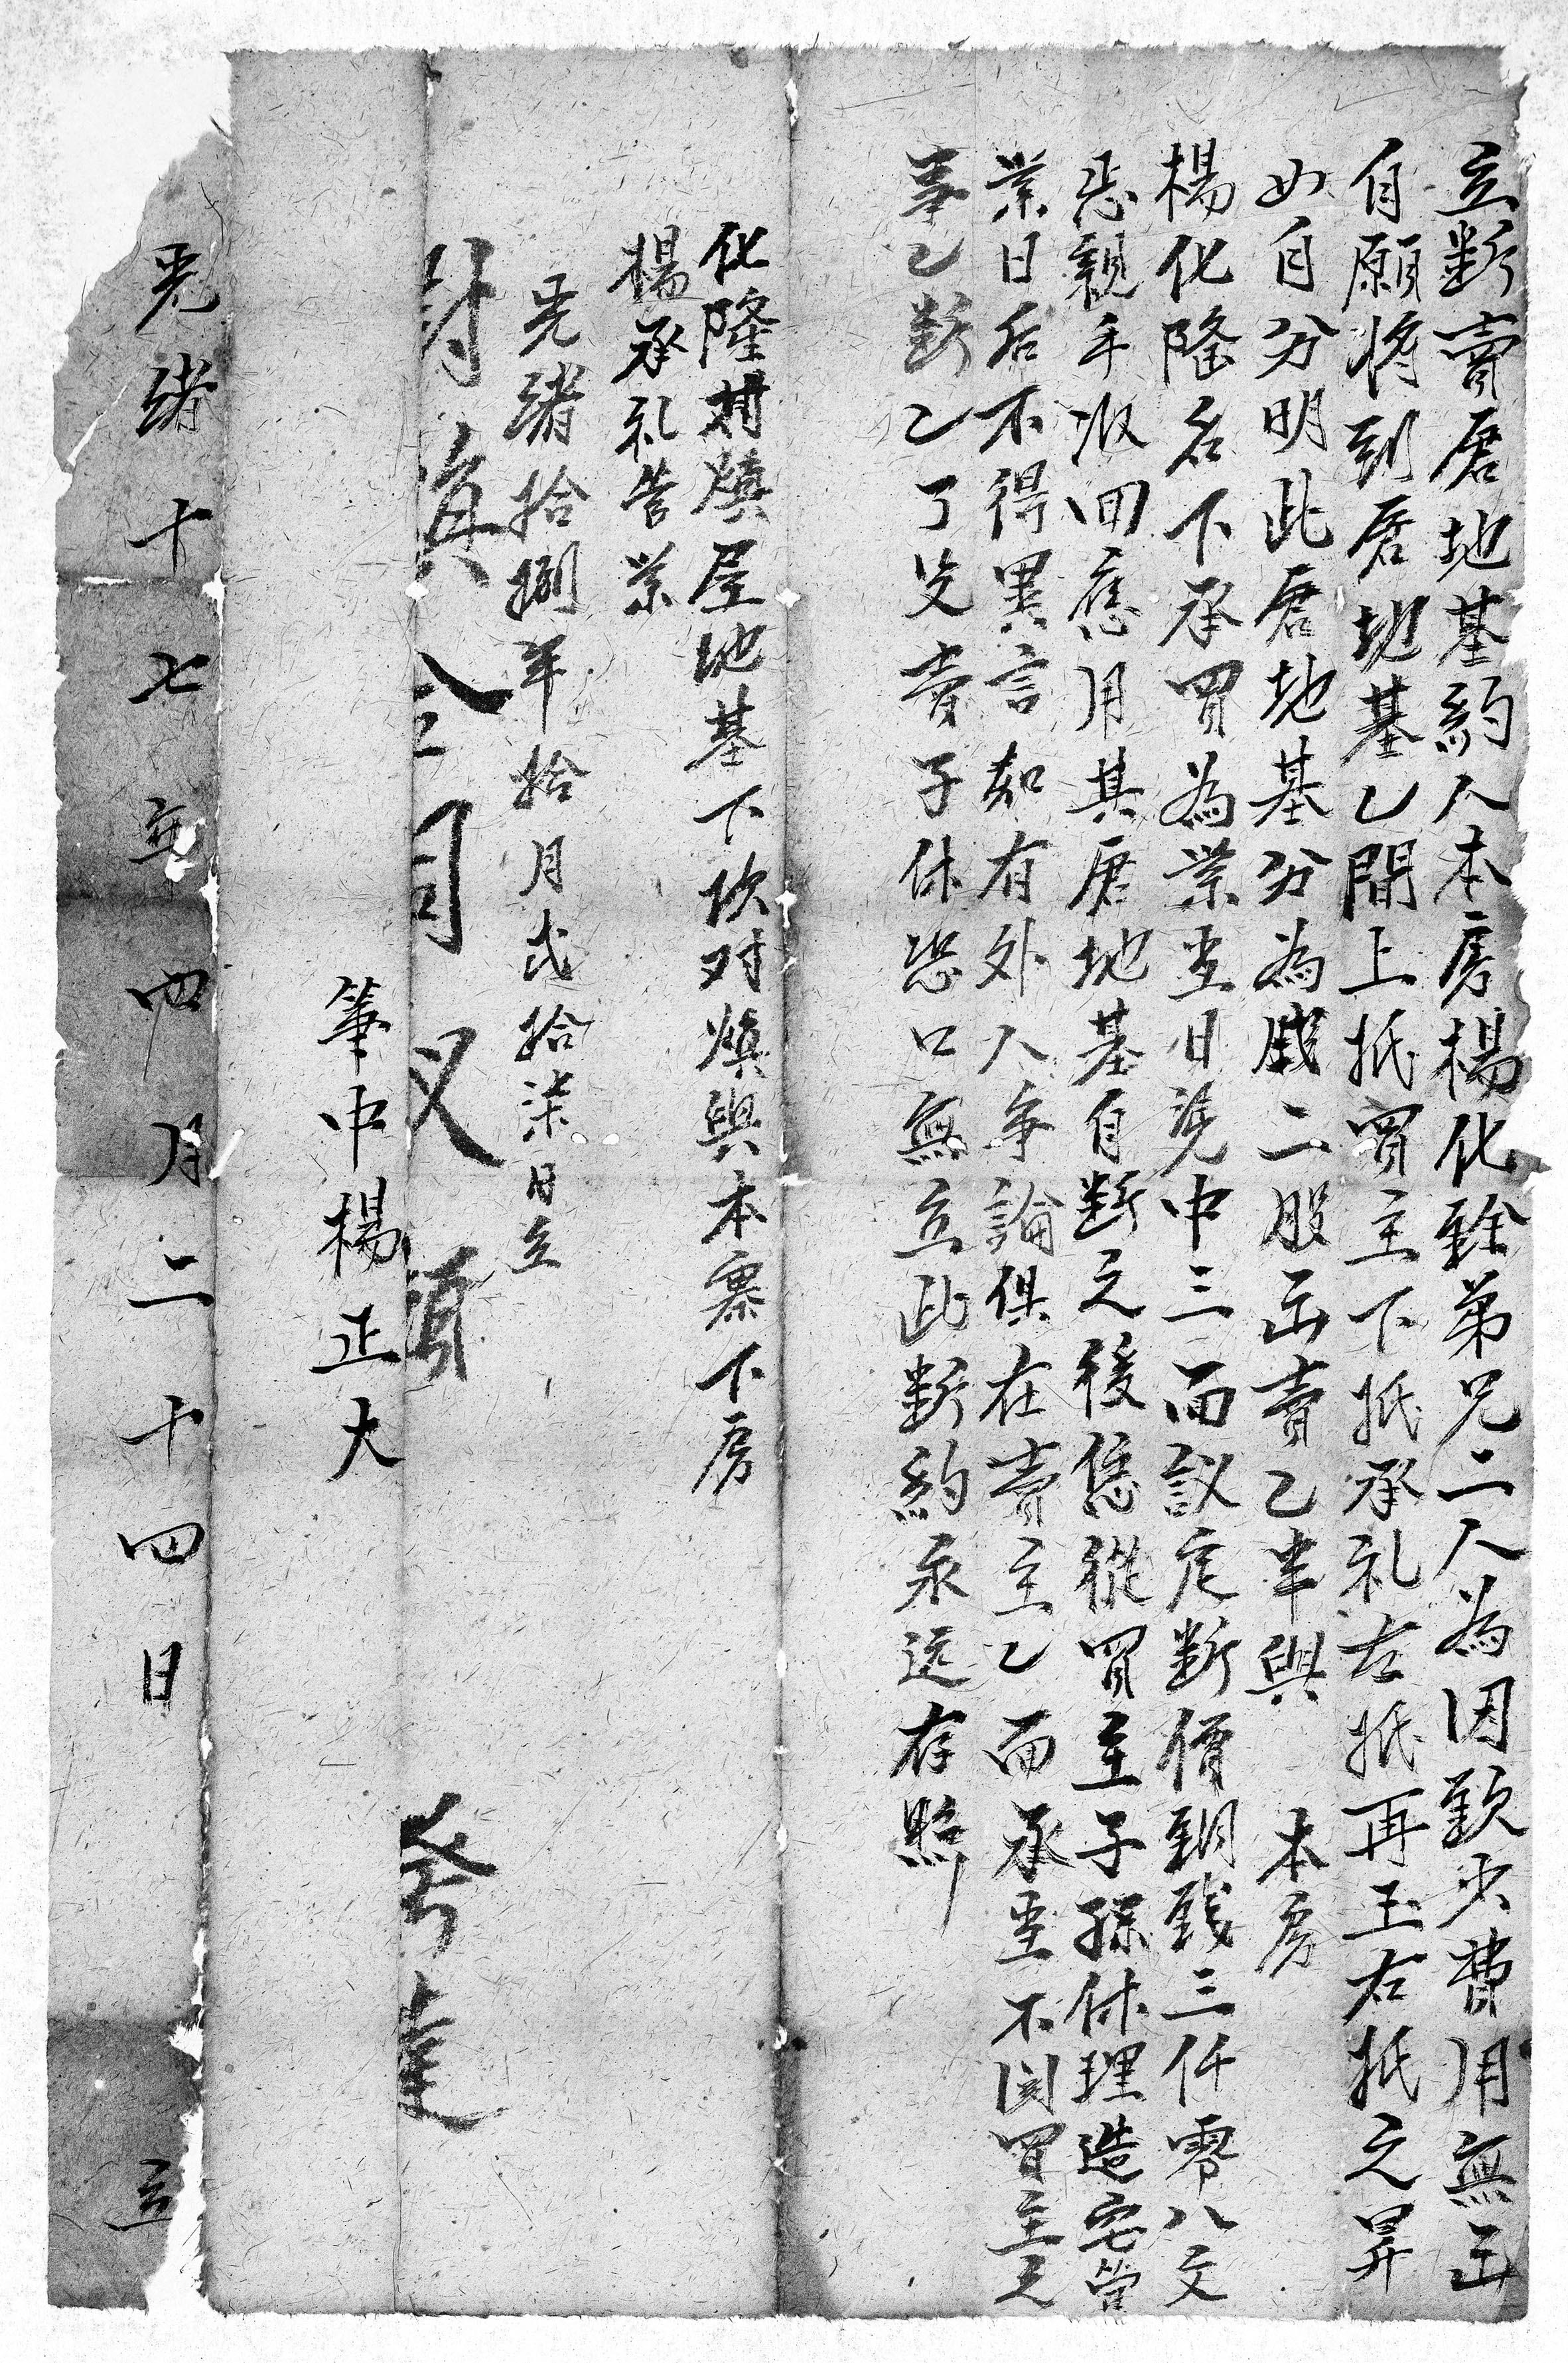 立断賣唐地基約人本房楊化銓弟兄二人為因歉少費用無出
自願將到唐地基乙間上抵買主下抵承礼左抵再玉右抵之昇
四自分明此唐地基分為成二股出賣乙半與　本房
楊化隆名下承買為業当日凭中三面議定断價銅錢三仟零八文
親手收回應用其唐地基自断之後恁從買主子孫休理造宅管
業日后不得異言如有外人争論俱在賣主乙面承当不関買主之
事乙断乙了父賣子休恐口無立此断約永遠存照
化隆對燌屋地基下坎对燌與本寨下房
楊承礼管業
光緒拾捌年拾月弍拾柒日立
發達
筆中楊正大
光緒十七年四月二十四日　立